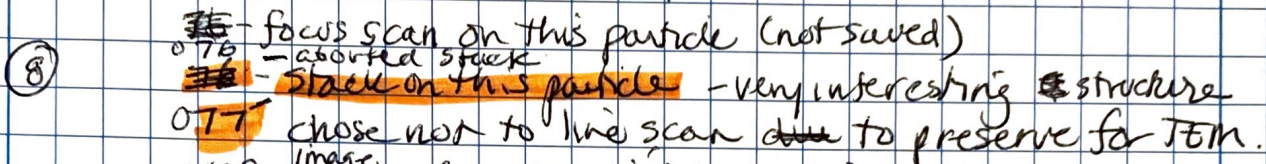 - focus scan on this particle (not saved)
076 - aborted stack
⑧ - Stack on this particle - very interesting structure
077 chose not to line scan to preserve for TEM.
image